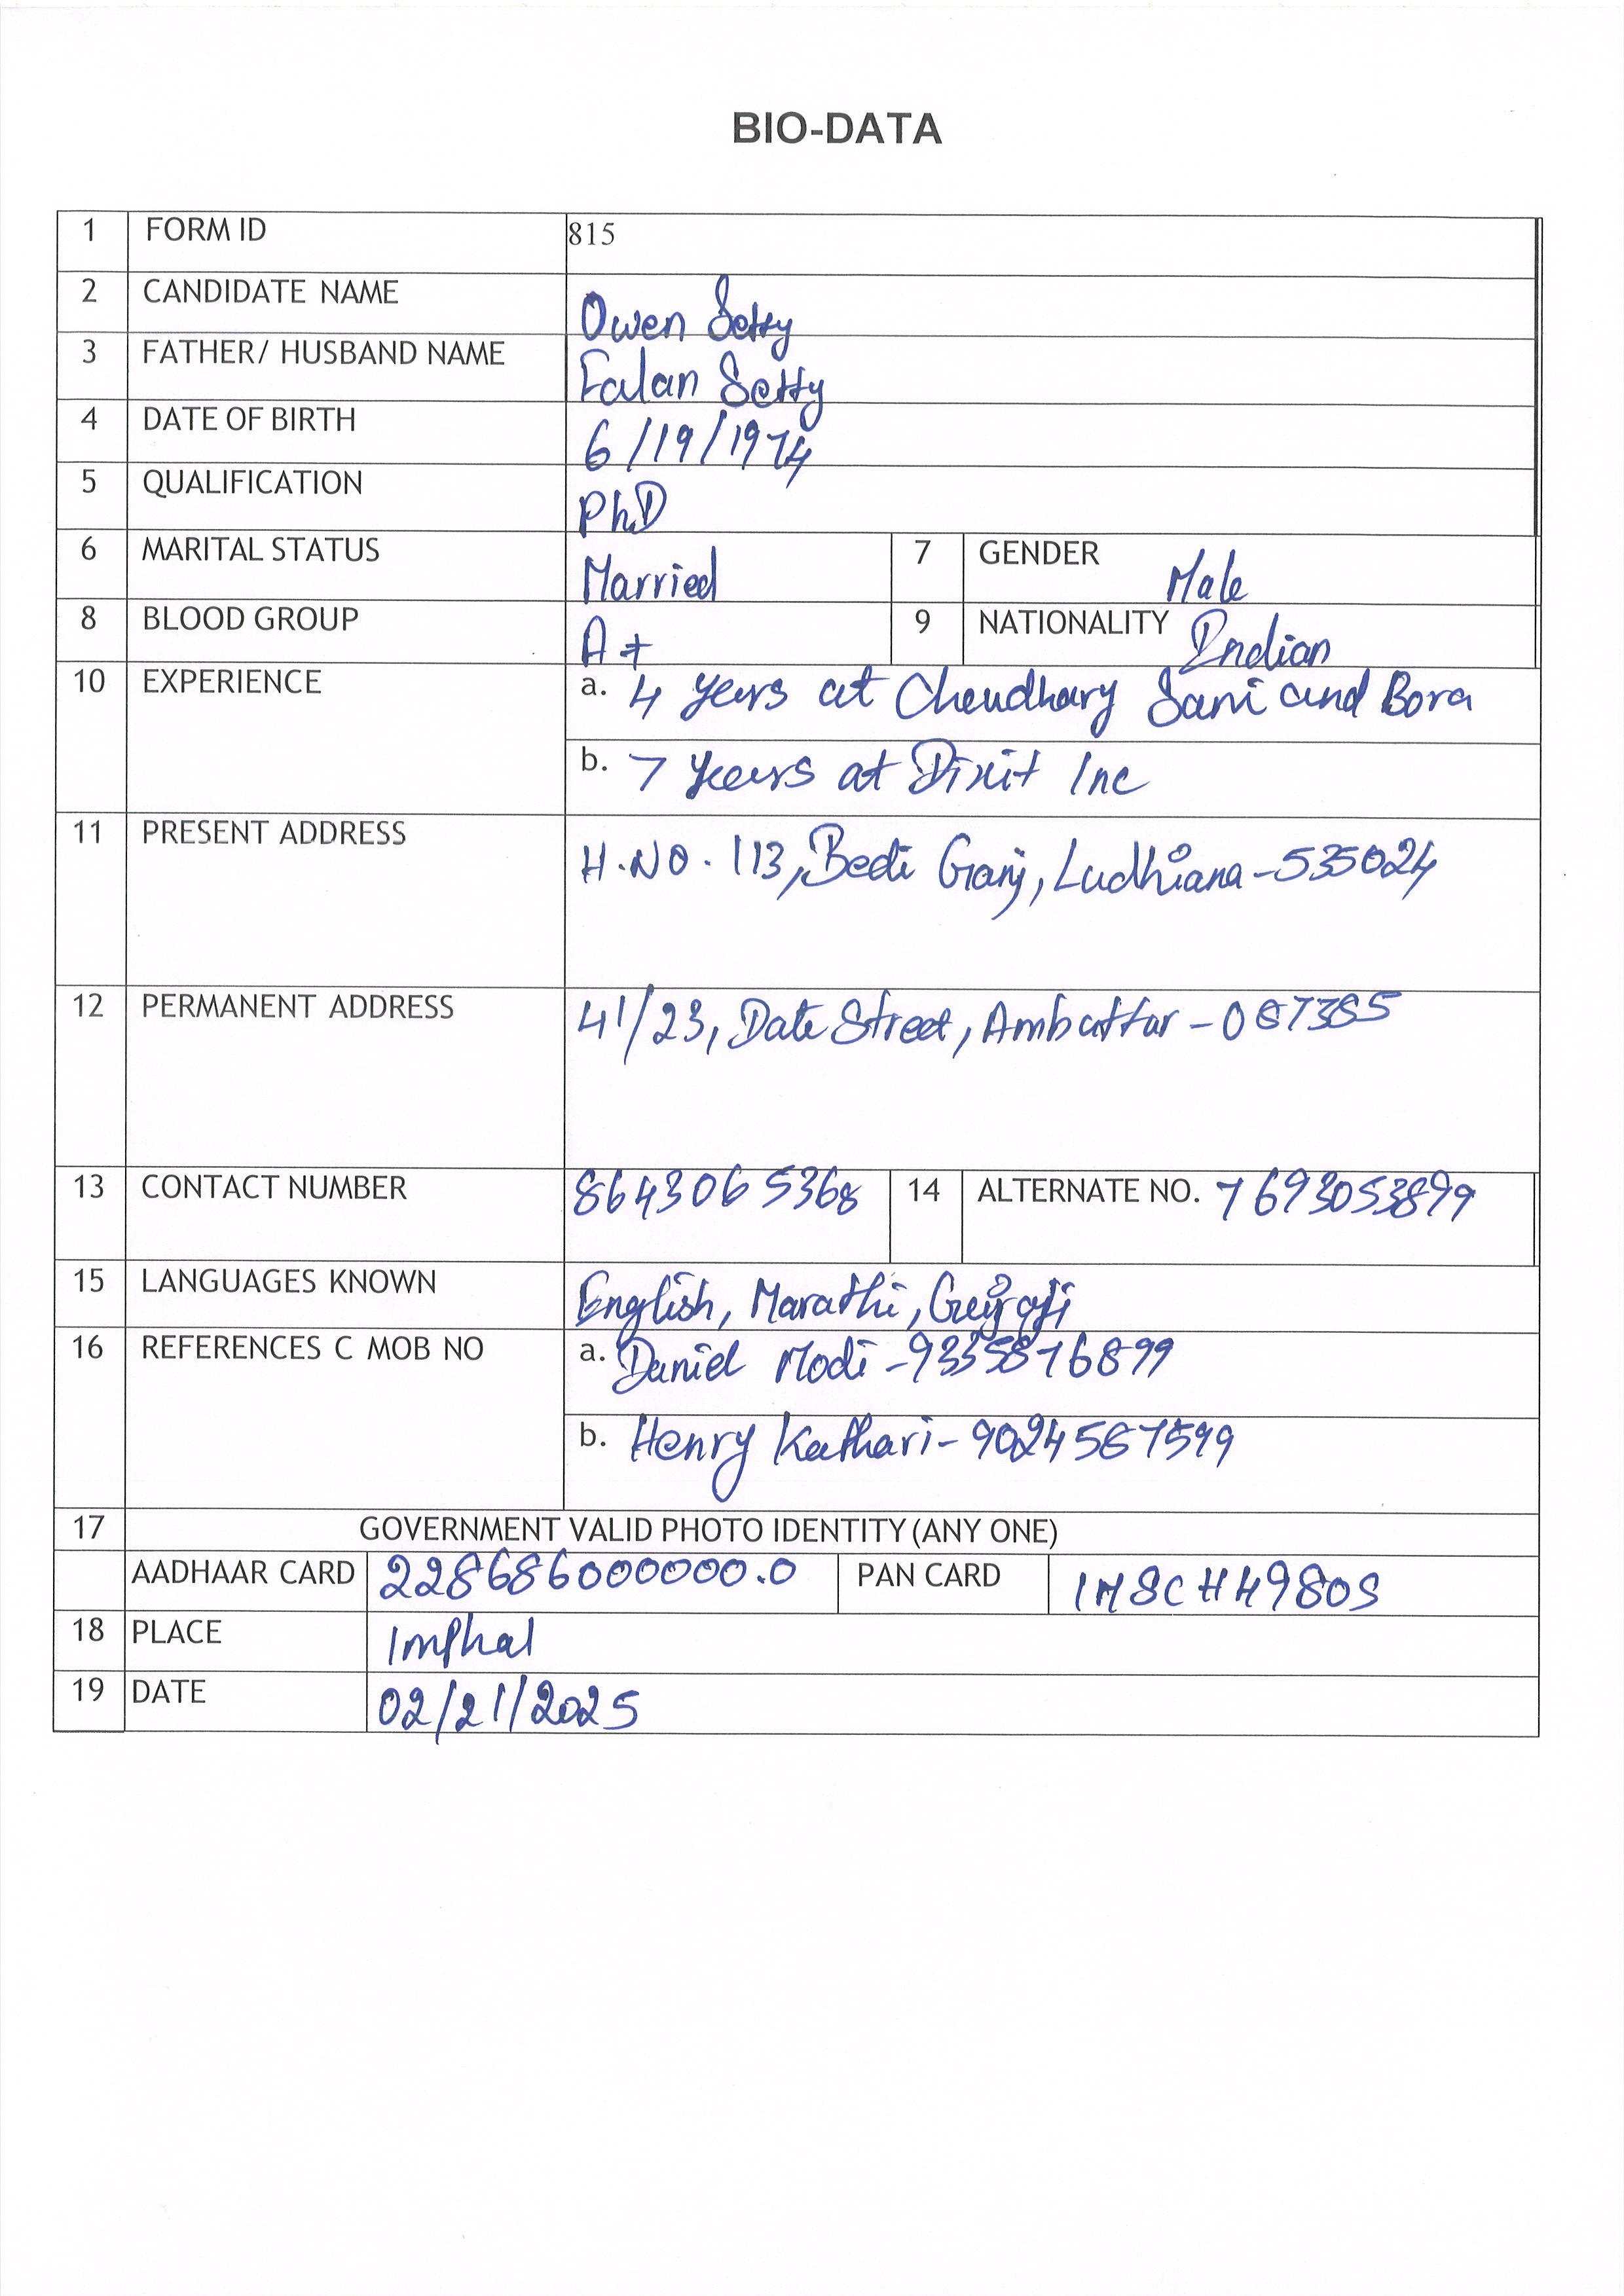 BIO-DATA
1 FORM ID 815
2 CANDIDATE NAME Owen Setty
3 FATHER/ HUSBAND NAME Falan Setty
4 DATE OF BIRTH 6/19/1974
5 QUALIFICATION PhD
6 MARITAL STATUS Married 7 GENDER Male
8 BLOOD GROUP A+ 9 NATIONALITY Indian
10 EXPERIENCE a. 4 years at Choudhary Sani and Bora
b. 7 years at Dixit Inc
11 PRESENT ADDRESS H.NO. 113, Bedi Ganj, Ludhiana-535024
12 PERMANENT ADDRESS 41/23, Date Street, Ambattur-087385
13 CONTACT NUMBER 8643065368 14 ALTERNATE NO. 7693053899
15 LANGUAGES KNOWN English, Marathi,
16 REFERENCES C MOB NO a. Daniel Modi-9335876899
b. Henry Kothari-9024567599
17 GOVERNMENT VALID PHOTO IDENTITY (ANY ONE)
AADHAAR CARD 228686000000.0 PAN CARD
18 PLACE Imphal
19 DATE 02/21/2025